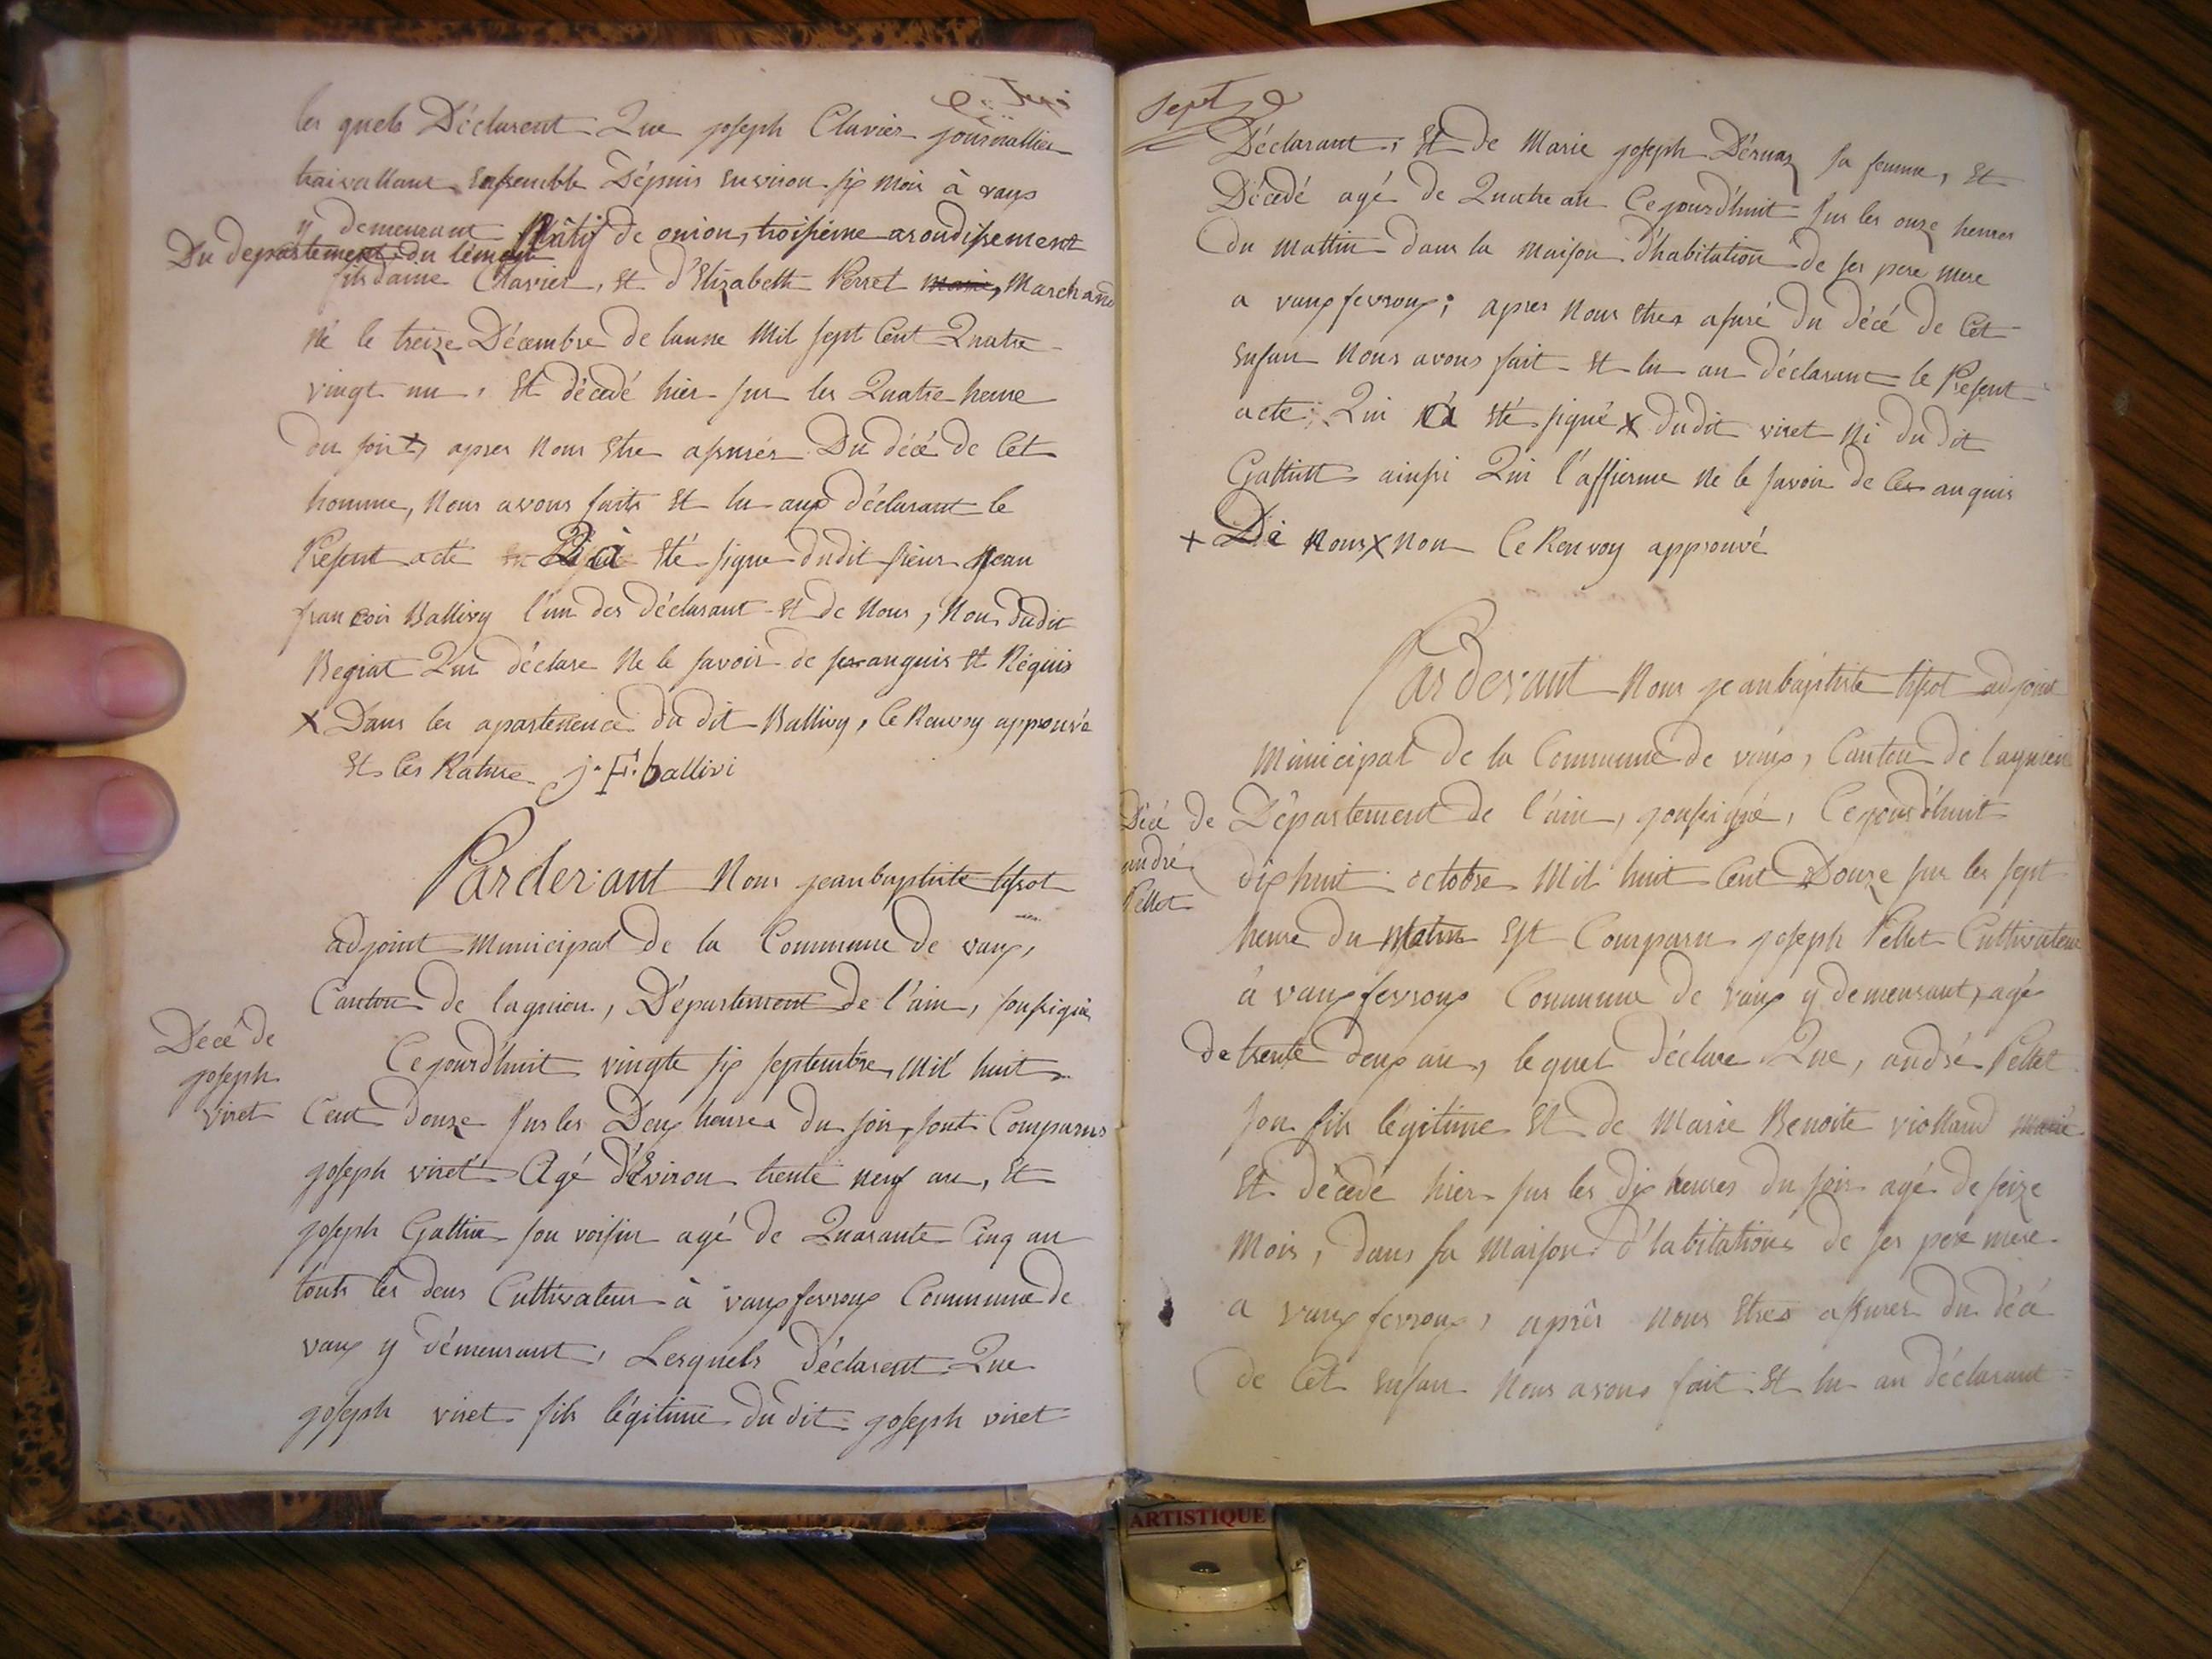 les quels Déclarent Que joseph Clavier journallier
traivallant Ensemble Dépuis Environ six mois à vaux
y demeurant Nâtif de onion, troisième arondissement
Du departement du léman
fils daime Clavier, Et d'Elizabeth Perret marié, Marchand
Né le treize Décembre de lanne Mil sept Cent Quatre
vingt un, Et décedé hier sur les Quatre heure
du soir X, apres Nous Etre assurés Du décé de Cet
homme, Nous avons faits Et lu aux déclarant le
Présent acté Qui à Eté signé dudit sieur jean
francois Ballivy l'un des déclarant Et de Nous, Non dudit
Regiat Qui déclare Ne le savoir de ses anquis Et Réquis
X Dans les apartenence du dit Ballivy, Ce Renvoy approuvé
Et les Rature j. F. ballivi
Pardevant Nous jeanbaptiste tissot
adjoint Municipal de la Commune de vaux,
Canton de lagnieu, Département de l'ain, soussigné
Décé de
joseph
viret
Cejourd'huit vingte six septembre Mil huit
Cent douze sur les Deux heures du soir, sont Comparus
joseph viret Agé d'Eviron trente neuf an, Et
joseph Gattin son voisin agé de Quarante Cinq an
touts les deux Cultivateur à vauxfevroux Commune de
vaux y démeurant, Lesquels déclarent Que
joseph viret fils légitime du dit joseph viret
Sept
Déclarant, Et de Marie joseph Dérnaz sa femme, Et
Décedé agé de Quatre an Cejourd'huit sur les onze heures
du mattin dans la maison d'habitation de ses pere mere
a vauxfevroux; apres Nous Etres asuré du décé de Cet
Enfan Nous avons fait Et lu au déclarant le Présent
acte; Qui n'à Eté signé X dudit viret Ni du dit
Gattin ainssi Qui l'affierme Ne le savoir de Ces anquis
+ De Nous X Non Ce Renvoy approuvé
Pardevant Nous jeanbaptiste tissot adjoint
Municipal de la Commune de vaux, Canton de lagnieu
Décé de
andré
Pellet
Département de l'ain, soussigné, Cejourd'huit
dixhuit octobre Mil huit Cent Douze sur les sept
heure du Matin Est Comparu joseph Pellet Cultivateur
à vauxfevroux Commune de vaux y demeurant, agé
de trente deux an, lequel déclare Que, andré Pellet
son fils légitime Et de Marie Benoite violland marié
Et décedé hier sur les dix heures du soir agé de seize
Mois, dans sa Maison d'habitations de ses pere mere
a vauxfevroux, après nous Etres assurer du décé
de Cet Enfan Nous avons fait Et lu au déclarant
ARTISTIQUE